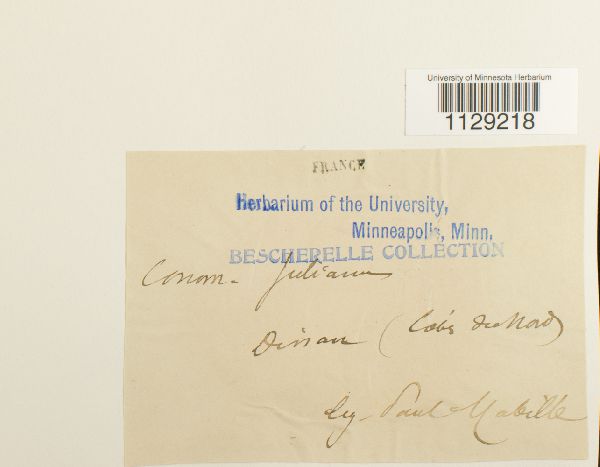 University of Minnesota Herbarium
1129218
FRANCE
Herbarium of the University,
Minneapolis, Minn.
BESCHERELLE COLLECTION
Conom. Juliana
Dinan (Côtes du Nord)
leg. Paul Mabille